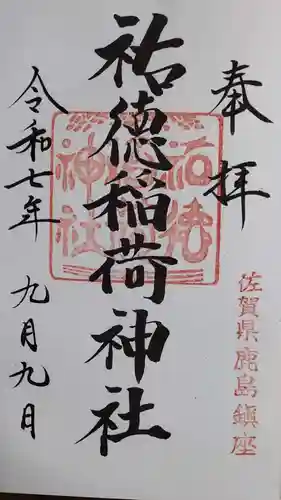 奉拝
佐賀県鹿島鎮座
祐徳稲荷神社
祐徳
神社
令和七年九月九日